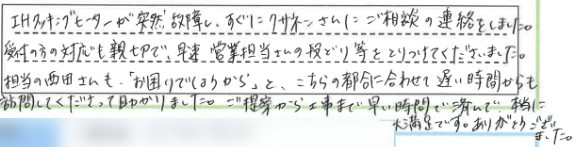 IHクッキングヒーターが突然故障し、すぐにクサネンさんにご相談の連絡をしました。
受付の方の対応も親切で、早速営業担当さんの段どり等をとりつけてくださいました。
担当の西田さんも、「お困りでしょうから」と、こちらの都合に合わせて遅い時間からも
訪問してくださって助かりました。ご提案から工事まで早い時間で済んで、本当に
大満足です。ありがとうござい
ました。